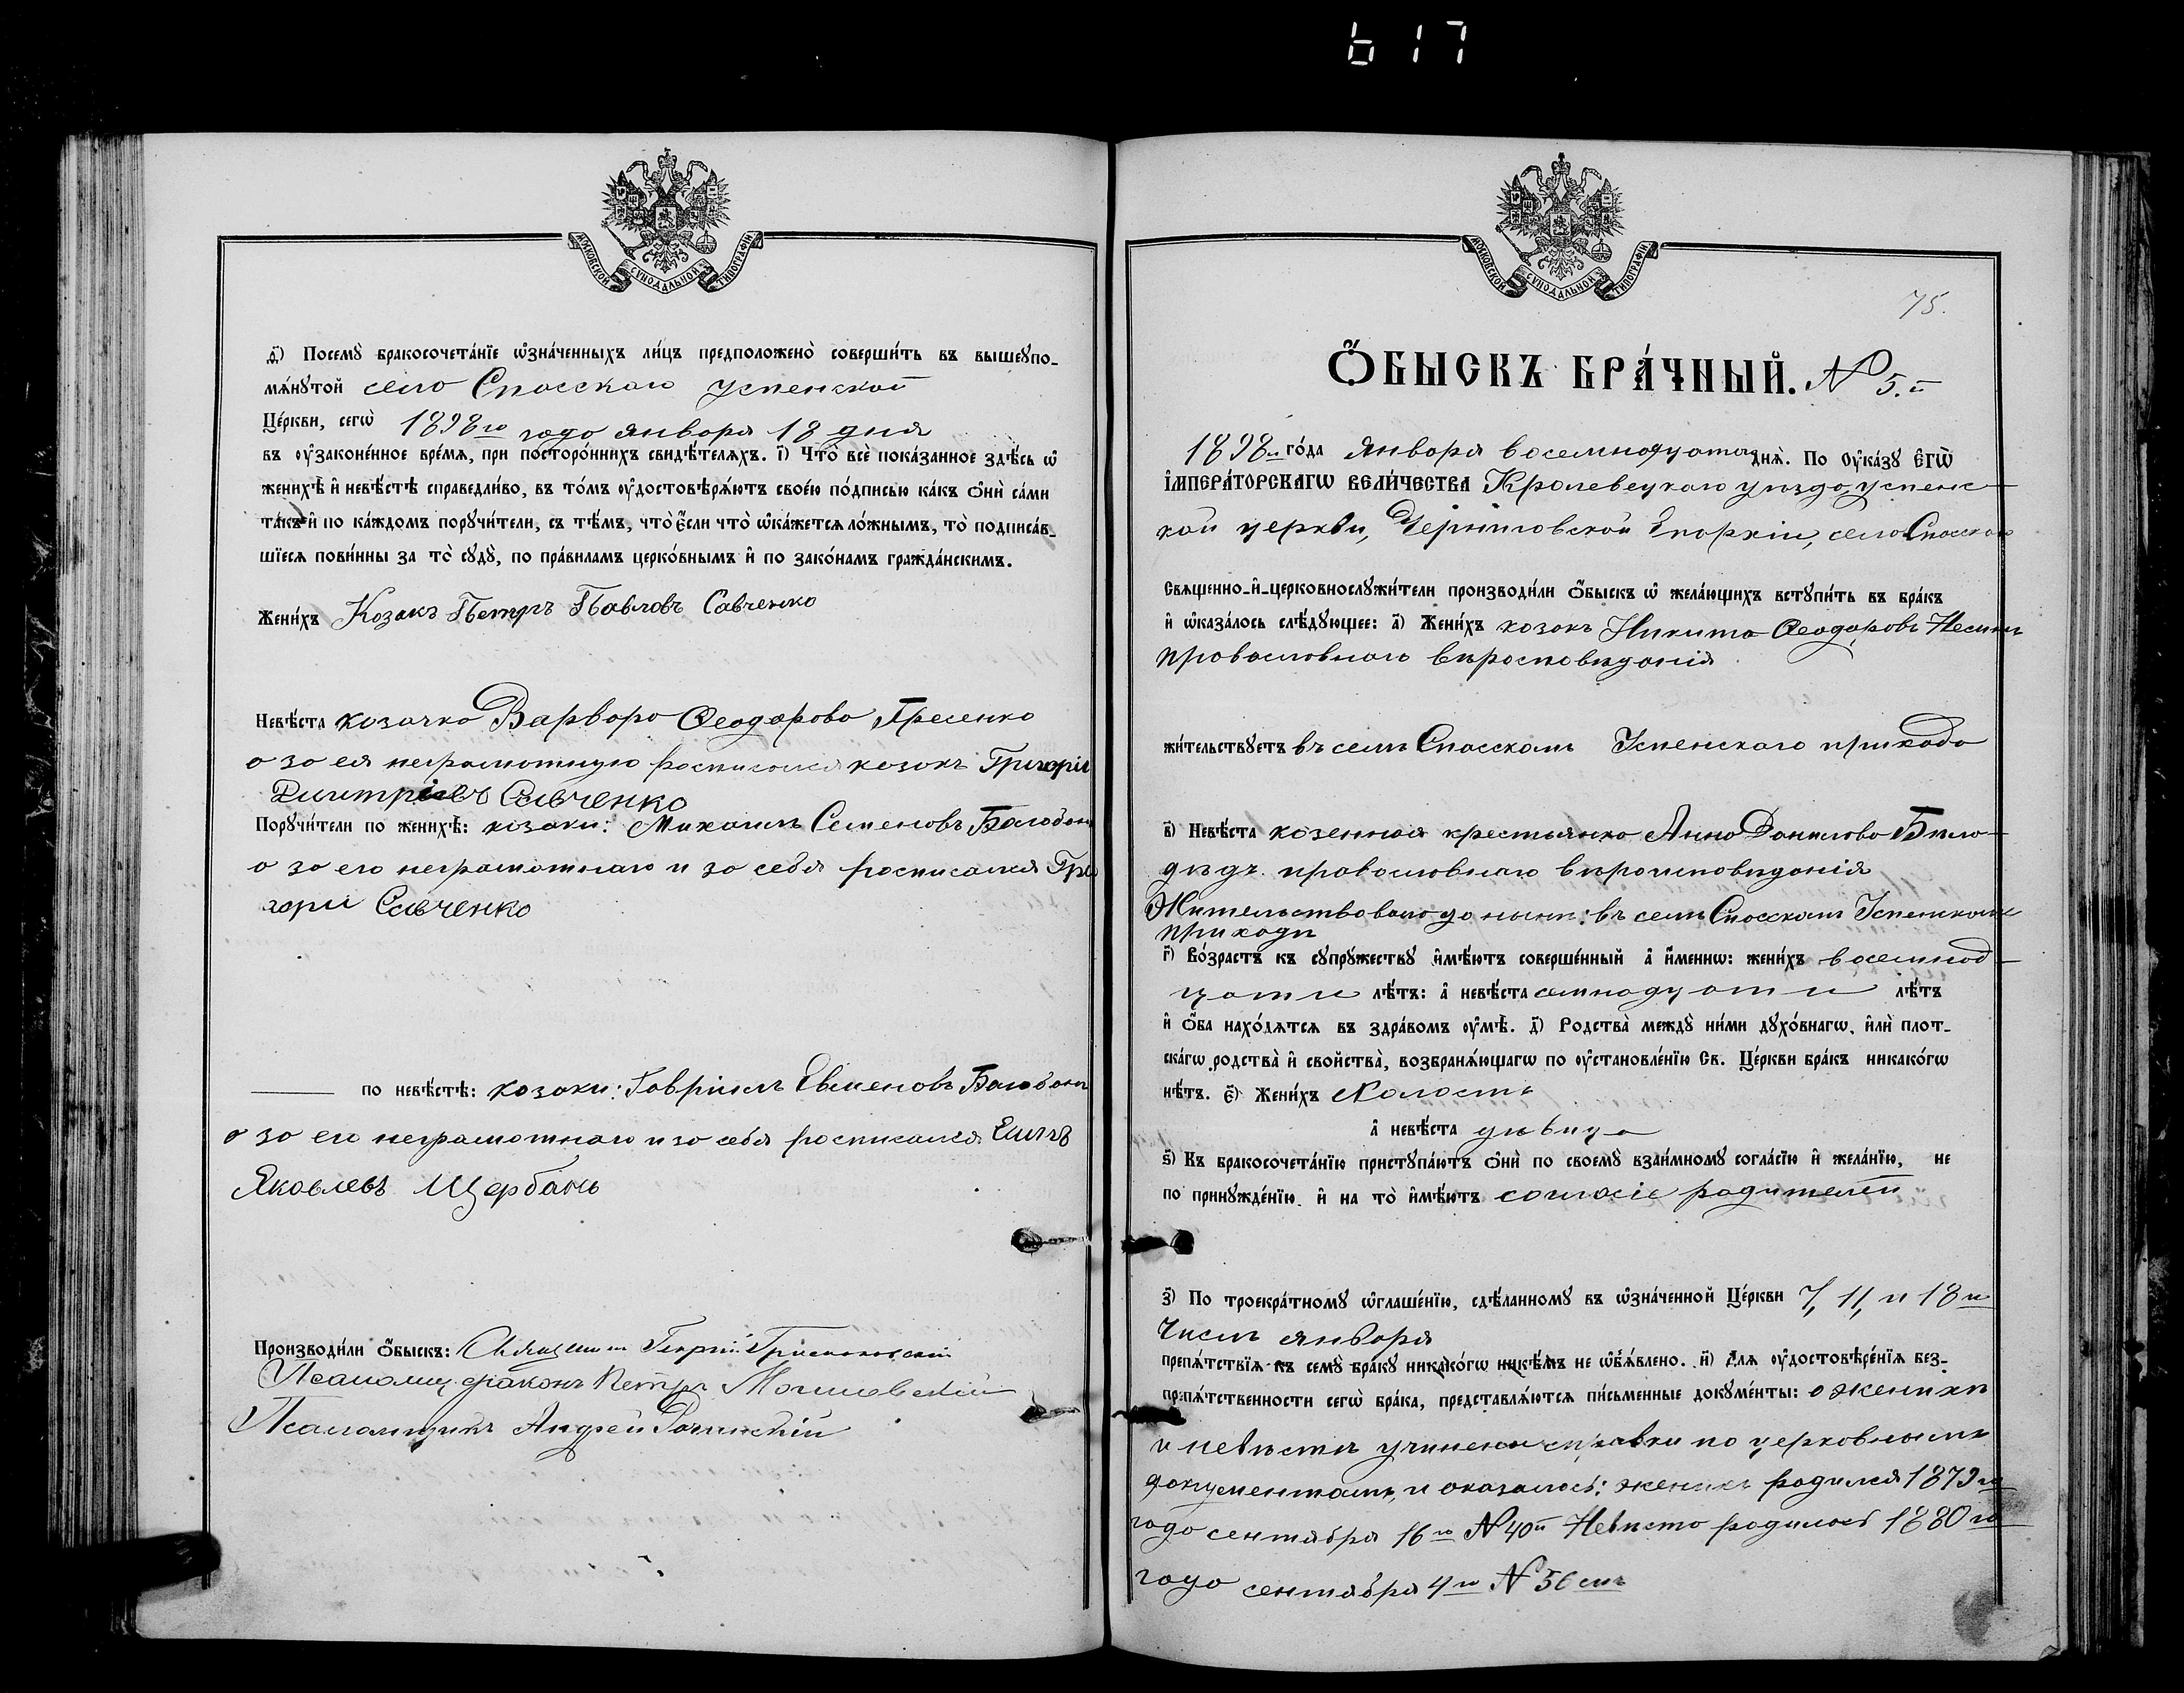 617
МОСКОВСКОЙ СѴНОДАЛЬНОЙ ТИПОГРАФІИ
ѳ҃) Посемꙋ̀ бракосочета́нїе ѡ҆зна́ченныхъ ли́цъ предположено̀ соверши́ть въ вышеꙋпо-
мѧ́нꙋтой села Спасскаго Успенской
Це́ркви, сегѡ̀ 1898го года января 18 дня
въ ᲂу҆законе́нное вре́мѧ, при посторо́ннихъ свидѣ́телѧхъ. і҃) Что̀ всѐ пока́занное здѣ́сь ѡ҆
женихѣ̀ и҆ невѣ́стѣ справедли́во, въ то́мъ ᲂу҆достовѣрѧ́ютъ свое́ю по́дписью ка́къ ѻ҆нѝ са́ми
та́къ и҆ по ка́ждомъ порꙋчи́тели, съ тѣ́мъ, что̀ є҆́сли что̀ ѡ҆ка́жетсѧ ло́жнымъ, то̀ подписа́в-
шїесѧ пови́нны за то̀ сꙋдꙋ̀, по пра́виламъ церко́внымъ и҆ по зако́намъ гражда́нскимъ.
Жени́хъ Козакъ Петръ Павловъ Савченко
Невѣ́ста козачка Варвара Ѳеодорова Гресенко
а за ея неграмотную росписался козакъ Григорій
Димитріевъ Савченко
Порꙋчи́тели по женихѣ̀: козаки: Михаилъ Семеновъ Балабанъ
а за его неграмотнаго и за себя росписался Гри
горій Савченко
по невѣ́стѣ: козаки: Гавріилъ Евменовъ Балабанъ
а за его неграмотнаго и за себя росписался
Яковлевъ Щербань
Производи́ли ѻ҆́быскъ: Священникъ Георгій
Псаломщ. діаконъ Петръ Могилевскій
Псаломщикъ Андрей
МОСКОВСКОЙ СѴНОДАЛЬНОЙ ТИПОГРАФІИ
75.
Ѻ҆́БЫСКЪ БРА́ЧНЫЙ. № 5.й
1898го го́да января восемнадцатаго днѧ̀. По ᲂу҆ка́зꙋ є҆гѡ̀
і҆мпера́торскагѡ вели́чества Кролевецкаго уѣзда, Успенс-
кой церкви, Черниговской Епархіи, села Спасскаго
Свѧщенно-и҆-церковнослꙋжи́тели производи́ли ѻ҆́быскъ ѡ҆ жела́ющихъ встꙋпи́ть въ бра́къ
и҆ ѡ҆каза́лось слѣ́дꙋющее: а҃) Жени́хъ козакъ Никита Ѳеодоровъ
православнаго вѣроисповѣданія
жи́тельствꙋетъ въ селѣ Спасскомъ Успенскаго прихода
в҃) Невѣ́ста козенная крестьянка Анна Данилова Бѣло-
дѣдъ православнаго вѣроисповѣданія
Жительствовала до нынѣ: въ селѣ Спасскомъ Успенскомъ
приходѣ
г҃) Во́зрастъ къ сꙋпрꙋ́жествꙋ и҆мѣ́ютъ соверше́нный а҆ и҆́меннѡ: жени́хъ восемнад-
цати лѣ́тъ: а҆ невѣ́ста семнадцати лѣ́тъ
и҆ ѻ҆́ба нахо́дѧтсѧ въ здра́вомъ ᲂу҆мѣ̀. д҃) Родства̀ междꙋ̀ ни́ми дꙋхо́внагѡ, и҆лѝ плот-
ска́гѡ родства̀ и҆ свойства̀, возбранѧ́ющагѡ по ᲂу҆становле́нїю Св. Це́ркви бра́къ никако́гѡ
нѣ́тъ. є҃) Жени́хъ холостъ
а҆ невѣ́ста дѣвица
ѕ҃) Къ бракосочета́нїю пристꙋпа́ютъ ѻ҆нѝ по своемꙋ̀ взаи́мномꙋ согла́сїю и҆ жела́нїю, не
по принꙋжде́нїю, и҆ на то̀ и҆мѣ́ютъ согласіе родителей
з҃) По троекра́тномꙋ ѡ҆глаше́нїю, сдѣ́ланномꙋ въ ѡ҆зна́ченной Це́ркви 7, 11, и 18го
числъ января
препѧ́тствїѧ къ семꙋ̀ бра́кꙋ никако́гѡ никѣ́мъ не ѡ҆б̾ѧ́влено. и҃) Длѧ ᲂу҆достовѣре́нїѧ без-
препѧ́тственности сегѡ̀ бра́ка, представлѧ́ютсѧ пи́сьменные докꙋме́нты: о женихѣ
и невѣстѣ учинены справки по церковнымъ
документамъ, и оказалось: женихъ родился 1879го
года сентября 16го № 40й Невѣста родилась 1880го
года сентября 4го № 56